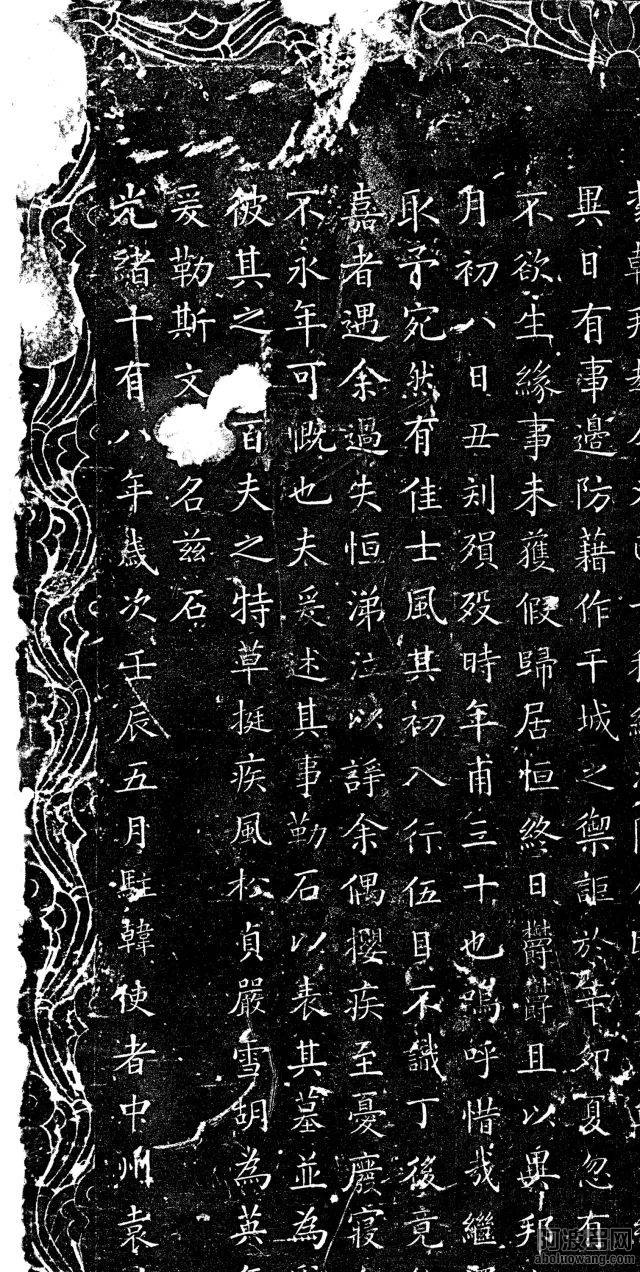 異日有事邊防藉作干城之禦詎於辛卯夏忽有
不欲生緣事未獲假歸居恒終日欝欝且以異邦
月初八日丑刻殞歿時年甫三十也嗚呼惜哉繼
取予宛然有佳士風其初入行伍目不識丁後竟
嘉者遇余過失恒涕泣以諍余偶攖疾至憂廢寢
不永年可慨也夫爰述其事勒石以表其墓並為
彼其之 百夫之特草挺疾風松貞嚴雪胡為英
爰勒斯文 名茲石
光緒十有八年歲次壬辰五月駐韓使者中州袁
阿波罗网
aboluowang.com